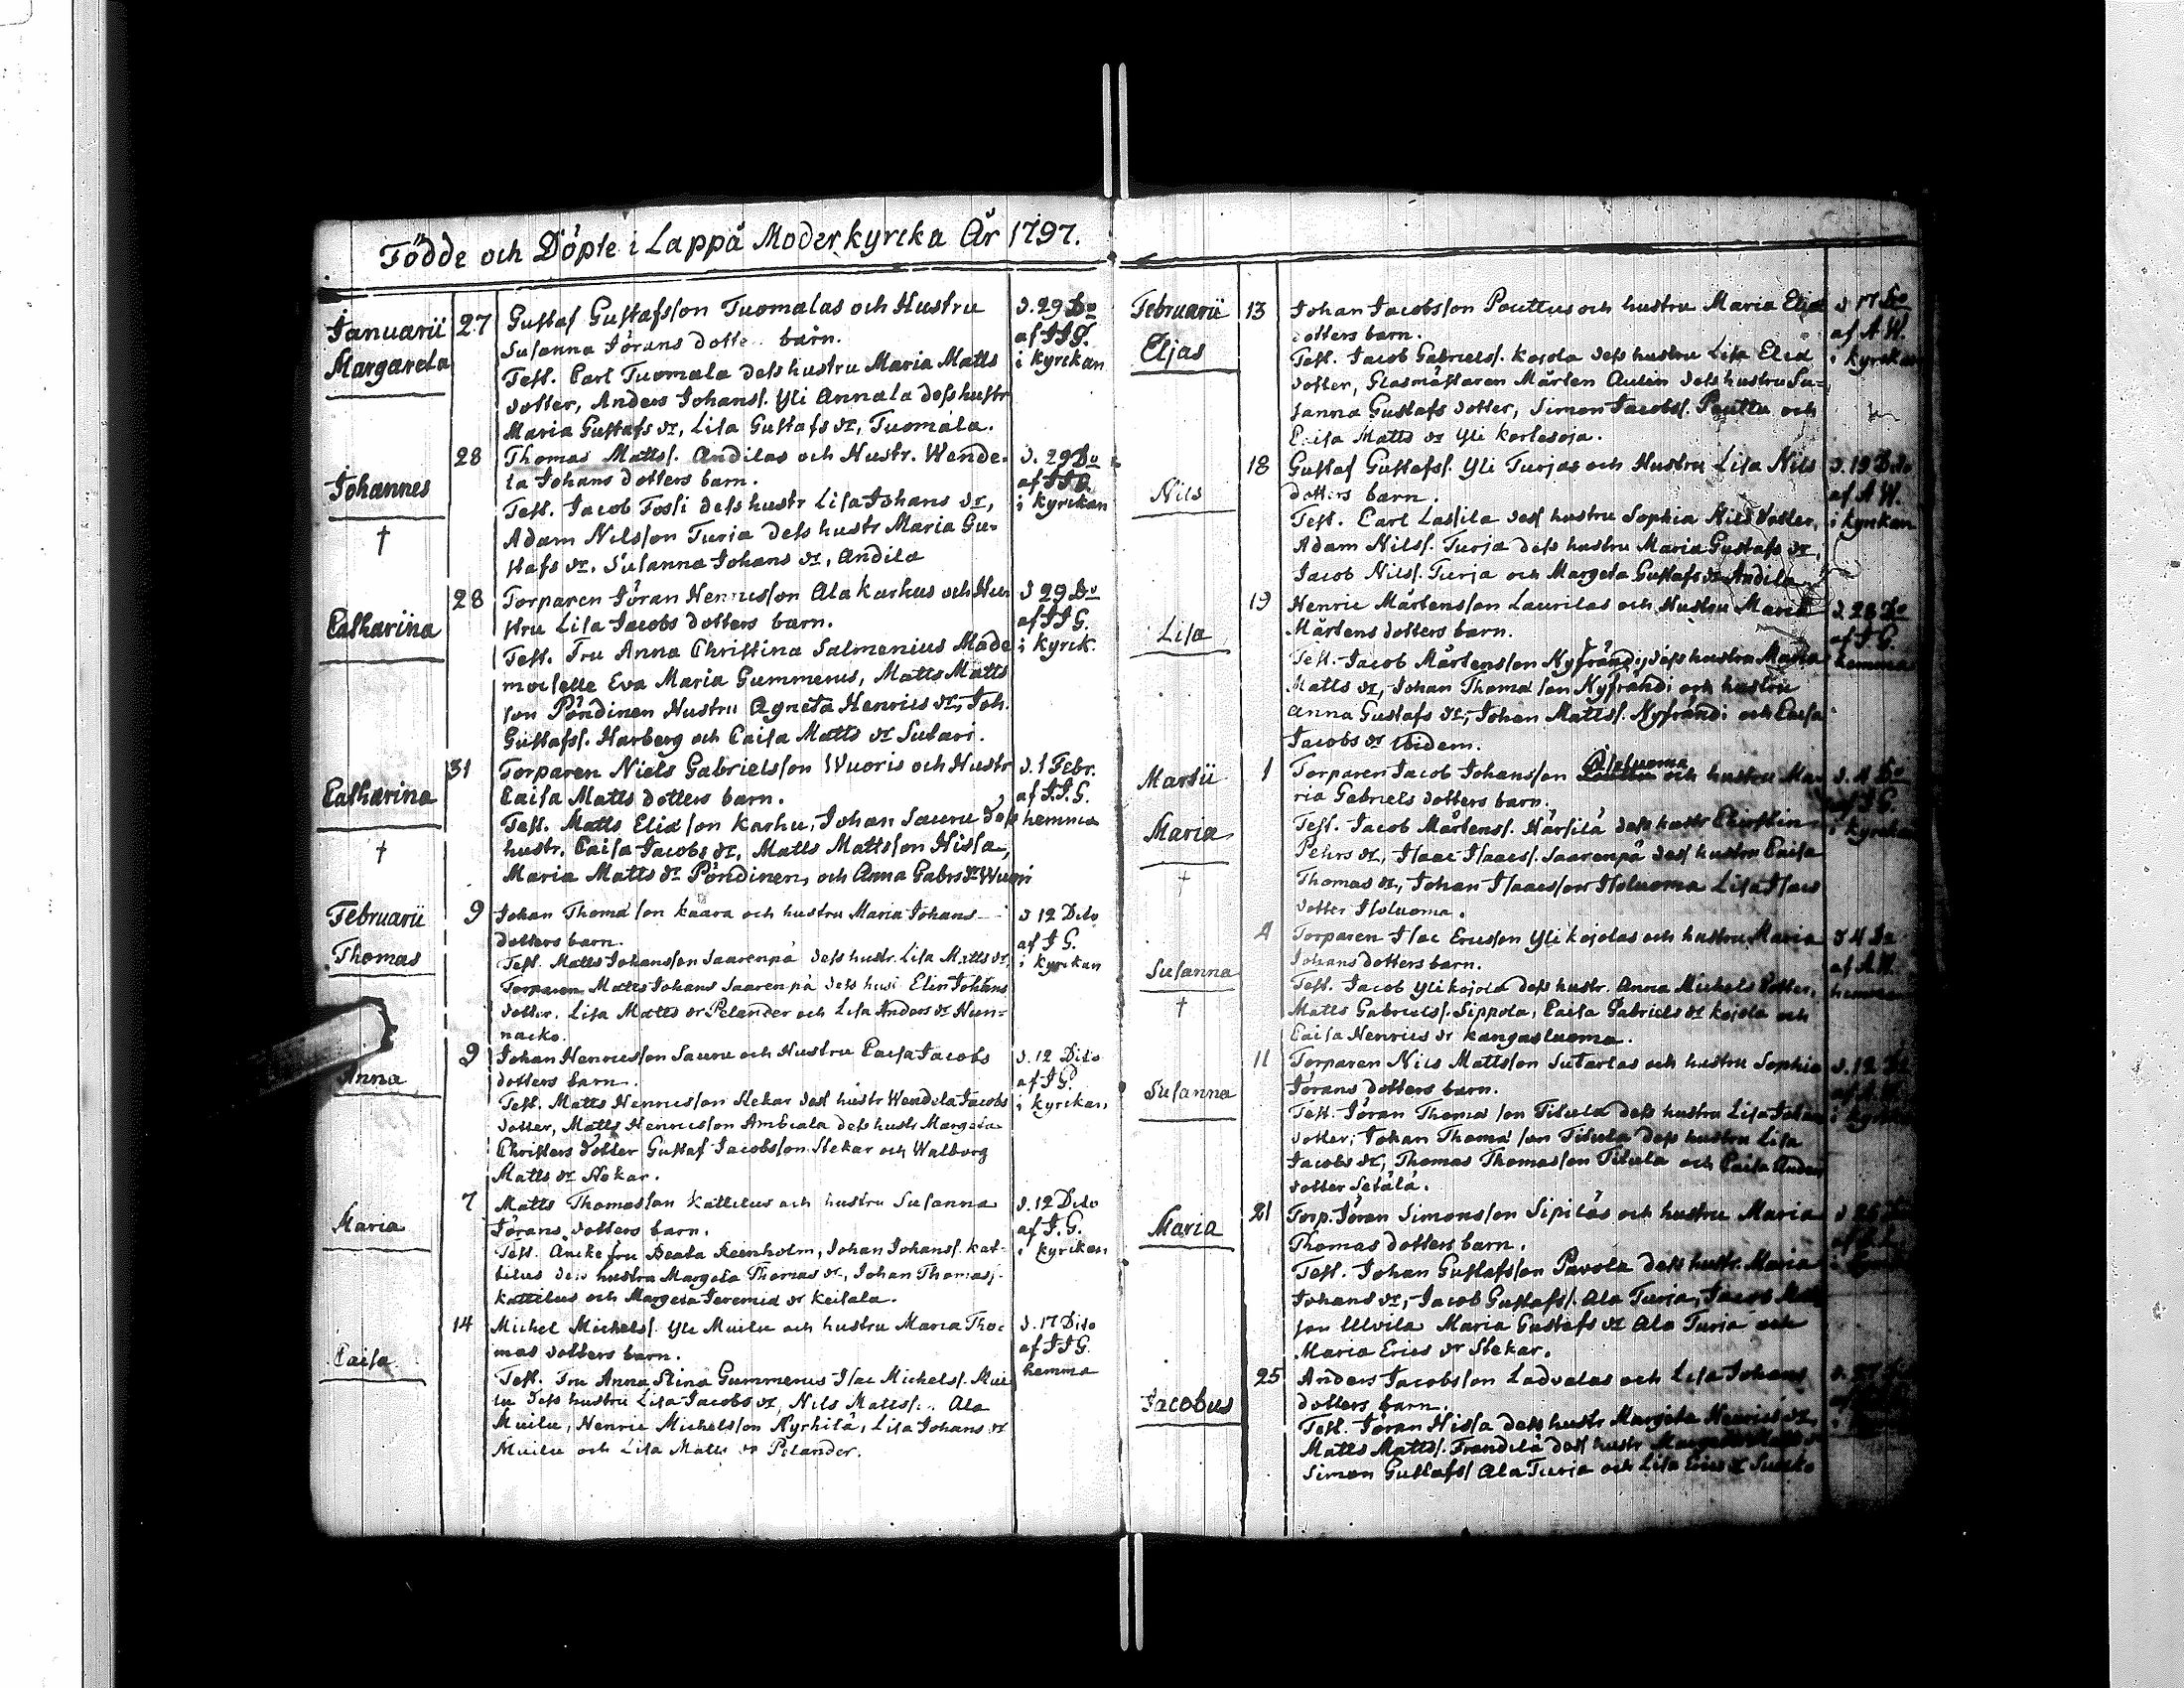 Födde och Döpte i Lappå Moderkyrcka År 1797.
Januarii 27 Gustaf Gustafsson Tuomalas och Hustru d. 29 Do
Margareta Susanna Jörans dotte barn. af I I G.
Test. Carl Tuomala dess hustru Maria Matts i kyrckan
dotter, Anders Johanss. Yli Annala dess hustr
Maria Gustafs dr, Lisa Gustafs dr, Tuomala.
28 Thomas Mattss. Andilas och Hustr. Wende- d. 29 Do
Johannes la Johans dotters barn. af I I G
† Test. Jacob Fossi dess hustr Lisa Johans dr, i kyrckan
Adam Nilsson Turja dess hustr Maria Gu-
stafs dr. Susanna Johans dr, Andila
28 Torparen Jöran Henricsson Ala Karhus och Hu- d 29 Do
Catharina stru Lisa Jacobs dotters barn. af I I G.
Test. Fru Anna Christina Salmenius Made i kyrck.
moiselle Eva Maria Gummerus, Matts Matts
son Pöndinen Hustru Agneta Henrics dr, Joh.
Gustafss. Harberg och Caisa Matts dr Sutari.
31 Torparen Niels Gabrielsson Wuoris och Hustr d. 1 Febr.
Catharina Caisa Matts dotters barn. af I. I. G.
† Test. Matts Eliæson Karhu, Johan Sauru dess hemma
hustr. Caisa Jacobs dr. Matts Mattsson Hissa,
Maria Matts dr Pöndinen, och Anna Gabrs dr Wuori
Februarii 9 Johan Thomæson Kaara och hustru Maria Johans d 12 Dito
Thomas dotters barn. af I G.
Test. Matts Johansson Saarenpä dess hustr. Lisa Matts dr, i kyrckan
Torparen Matts Johans Saarenpä dess hust Elin Johans
dotter. Lisa Matts dr Pelander och Lisa Anders dr Nun-
nacko.
9 Johan Henricsson Sauru och Hustru Caisa Jacobs d. 12 Dito
Anna dotters barn. af I G.
Test. Matts Henricsson Stekar dess hustr Wendela Jacobs i kyrckan
dotter, Matts Henricsson Ambiala dess hustr Margeta
Christers dotter Gustaf Jacobsson Stekar och Walborg
Matts dr Stekar.
7 Matts Thomasson Kattilus och hustru Susanna d. 12 Dito
Maria Jörans dotters barn. af I. G.
Test. Äncke fru Beata Reenholm, Johan Johanss. Kat- i kyrckan
tilus dess hustru Margeta Thomas dr, Johan Thomass.
Kattilus och Margeta Jeremiæ dr Keisala.
14 Michel Michelss. Yli Muilu och hustru Maria Tho- d. 17 Dito
Caisa mas dotters barn. af I I G.
Test. Fru Anna Stina Gummerus Isac Michelss. Mui- hemma
lu dess hustru Lisa Jacobs dr, Nils Mattss. Ala
Muilu, Henric Michelsson Kyrhilä, Lisa Johans dr
Muilu och Lisa Matts dr Pelander.
Februarii 13 Johan Jacobsson Pouttus och hustru Maria Eliæ d 17 Do
Eljas dotters barn. af A W.
Test. Jacob Gabrielss. Kojola dess hustru Lisa Eliæ i kyrckan
dotter, Glasmästaren Mårten Aulin dess hustru Su-
sanna Gustafs dotter, Simon Jacobss. Pouttu och
Caisa Matts dr Yli Kortesoja.
18 Gustaf Gustafss. Yli Turjas och Hustru Lisa Nils d. 19 Dito
Nils dotters barn. af A W.
Test. Carl Lassila dess hustru Sophia Nils dotter, i kyrckan
Adam Nilss. Turja dess hustru Maria Gustafs dr,
Jacob Nilss. Turja och Margeta Gustafs dr Andila
19 Henric Mårtensson Laurilas och Hustru Maria d. 28 Do
Lisa Mårtens dotters barn. af I G.
Test. Jacob Mårtensson Nyfrändi, dess hustru Maria hemma
Matts dr, Johan Thomæson Nyfrändi och hustru
Anna Gustafs dr, Johan Mattss. Nyfrändi och Caisa
Jacobs dr ibidem.
Isoluoma
Martii 1 Torparen Jacob Johansson och hustru Ma- d. 4 Do
Maria ria Gabriels dotters barn. af I G.
† Test. Jacob Mårtens. Härsilä dess hustr Christin i kyrckan
Pehrs dr, Isaac Isaacs. Saarenpä dess hustru Caisa
Thomas dr, Johan Isaacsson Isoluoma Lisa Isacs
dotter Isoluoma.
4 Torparen Isac Ericsson Yli Kojolas och hustru Maria d 4 Do
Susanna Johans dotters barn. af A W.
† Test. Jacob Yli Kojola dess hustr. Anna Michels dotter, hemma
Matts Gabrielss. Sippola, Caisa Gabriels dr Kojola och
Caisa Henrics dr Kangasluoma.
11 Torparen Nils Mattsson Sutarlas och hustru Sophia d. 12
Susanna Jörans dotters barn.
Test. Jöran Thomæson Titula dess hustru Lisa Johan
dotter, Johan Thomæson Titula dess hustru Lisa
Jacobs dr, Thomas Thomasson Titula och Caisa Anders
dotter Setälä.
21 Torp. Jöran Simonsson Sipiläs och hustru Maria d. 26
Maria Thomas dotters barn.
Test. Johan Gustafsson Pavola dess hustr. Maria
Johans dr, Jacob Gustafss. Ala Turja, Jacob
son Ulvila Maria Gustafs dr Ala Turja och
Maria Erics dr Stekar.
25 Anders Jacobsson Ladvalas och Lisa Johans
Jacobus dotters barn.
Test. Jöran Hissa dess hustr Margeta Henrics dr,
Matts Mattss. Frändilä dess hustr
Simon Gustafss Ala Turja och Lisa Erics dr